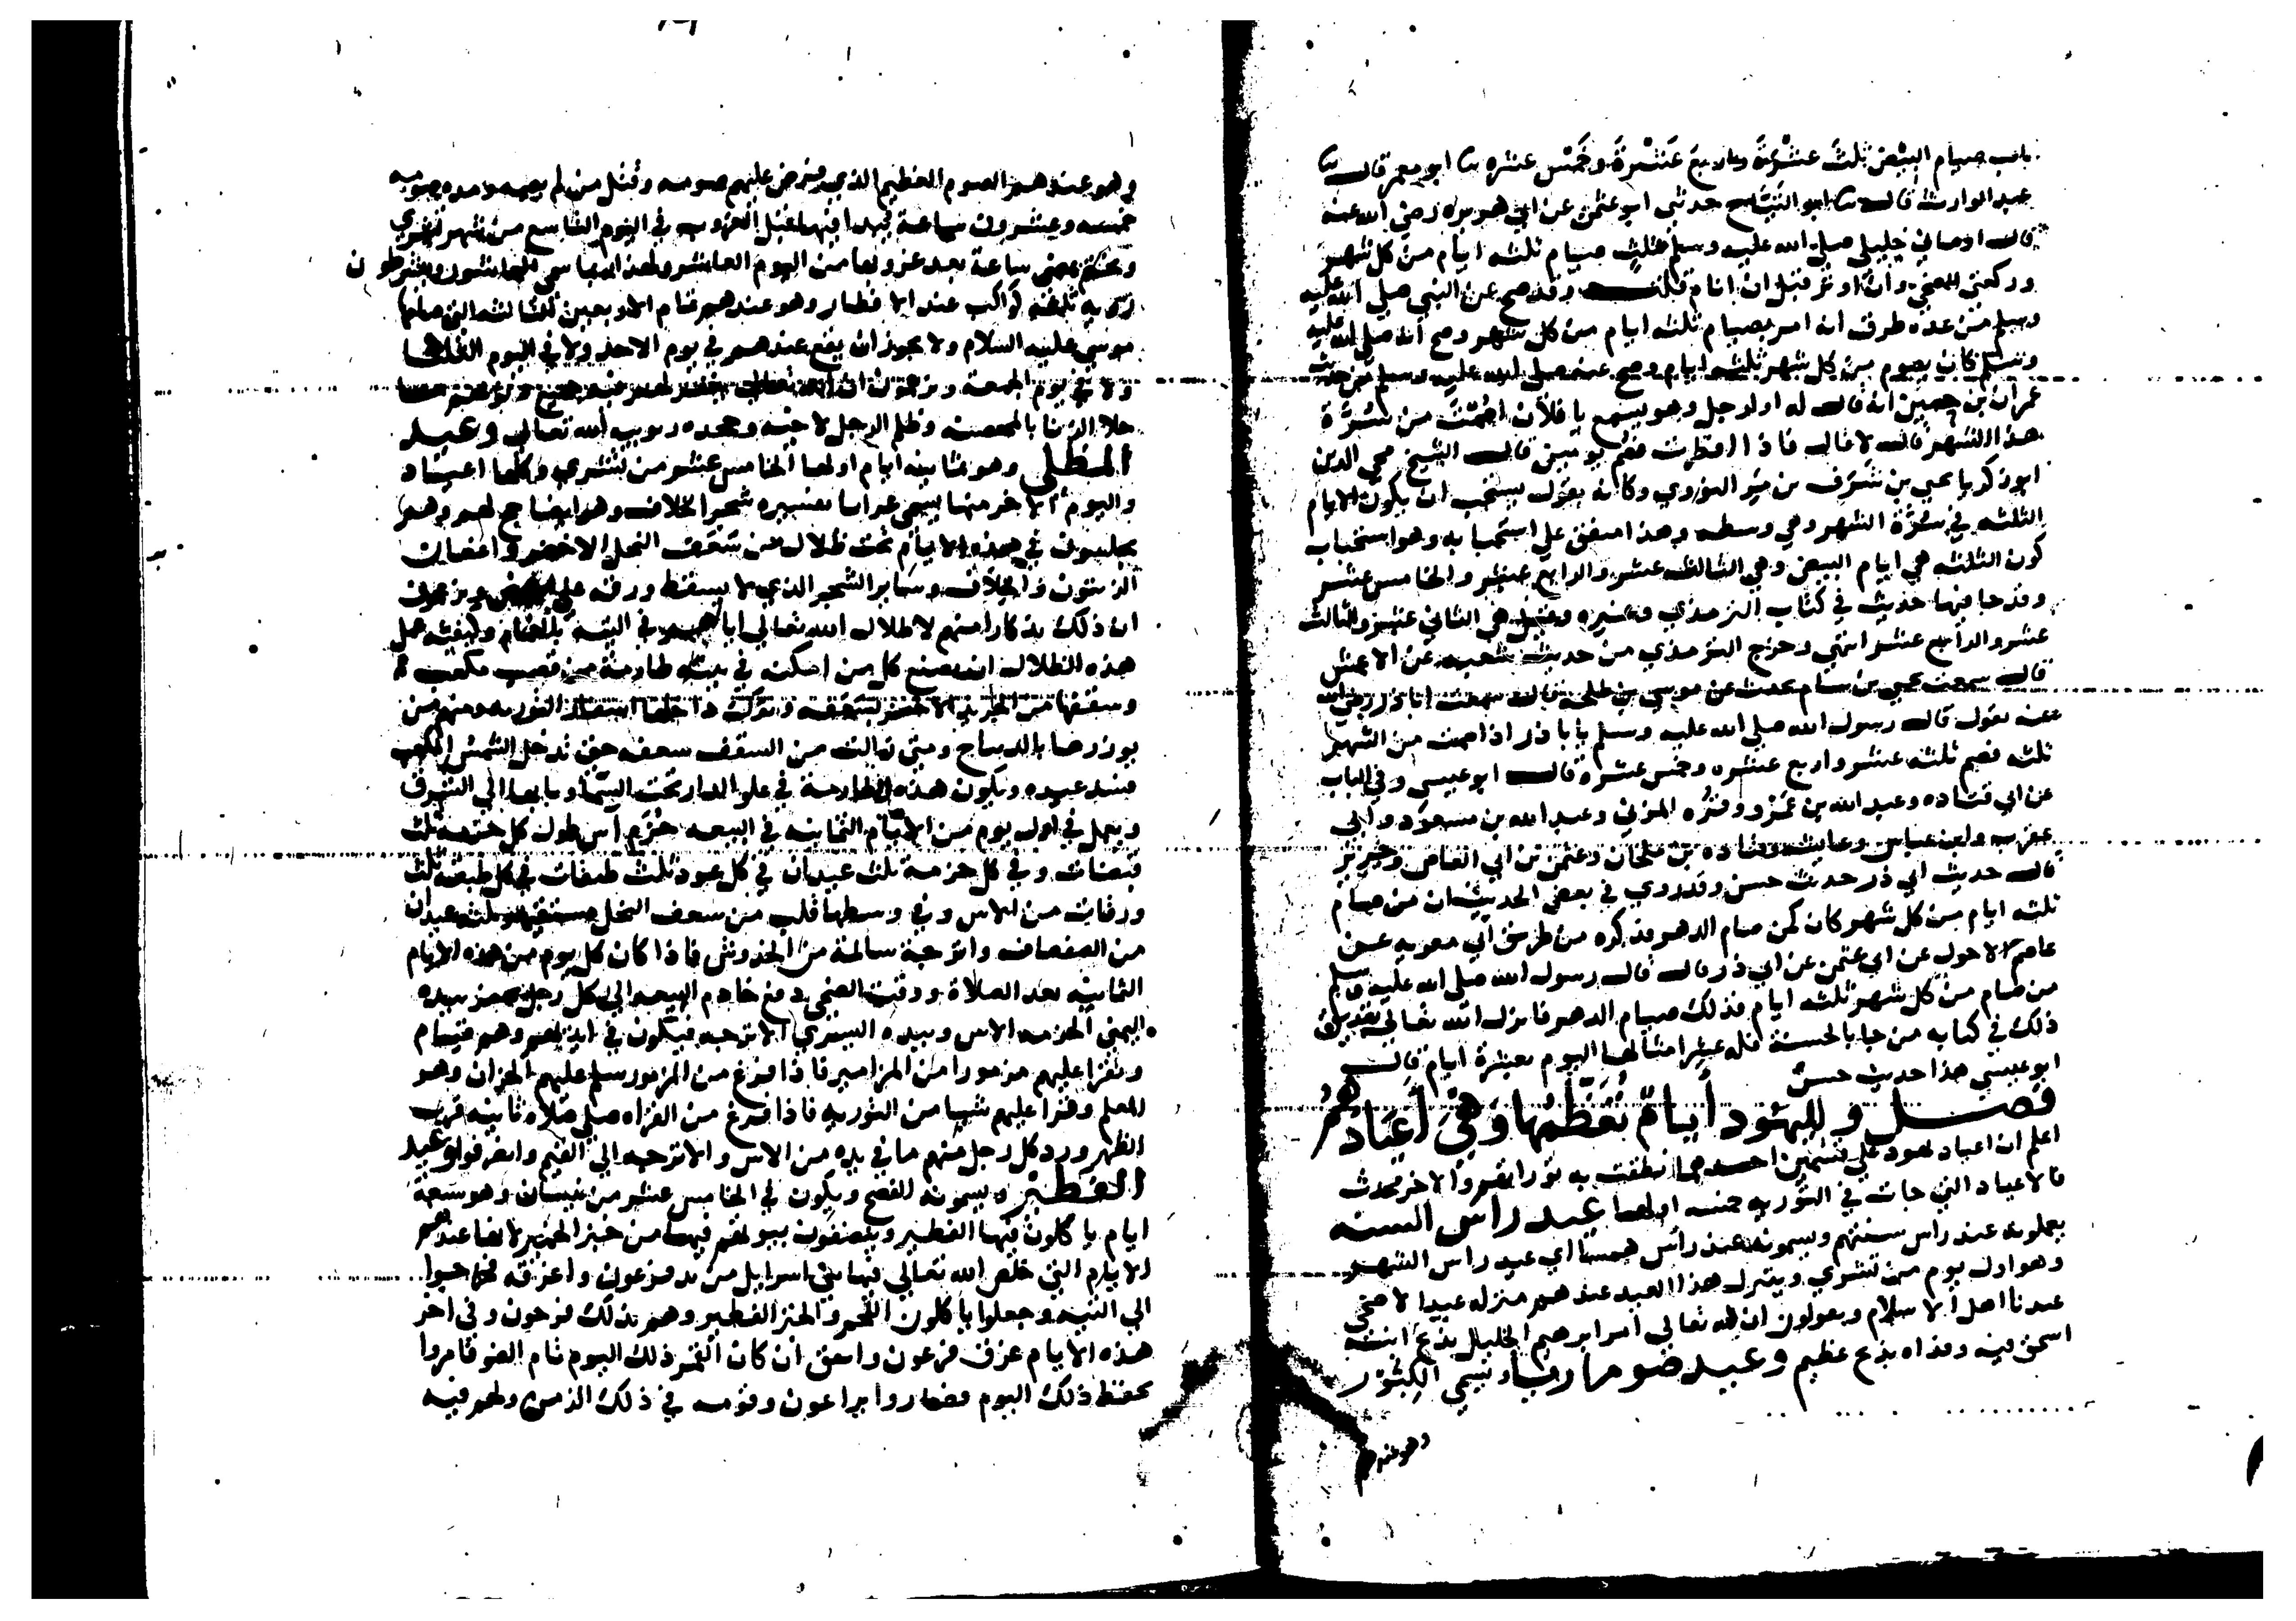 باب صيام البيض ثلث عشرة واربع عشرة وخمس عشره ثنا ابو معمر قال ثنا
عبد الوارث قال ثنا ابو التياح حدثني ابو عثمن عن ابي هريره رضي الله عنه
قال اوصاني خليلي صلي الله عليه وسلم بثلث صيام ثلثه ايام من كل شهر
وركعتي الضحي وان اوتر قبل ان انام وقد صح عن النبي صلي الله عليه
وسلم من عده طرق انه امر بصيام ثلثه ايام من كل شهر وصح انه صلي الله عليه
وسلم كان يصوم من كل شهر ثلثه ايام وصح عنه صلي الله عليه وسلم من حديث
عمران بن حصين انه قال له او لرجل وهو يسمع يا فلان اصمت من سرة
هذا الشهر قال لا قال فاذا افطرت فصم يومين قال الشيخ محي الدين
ابو زكريا يحيي بن شرف بن مري النووي وكانه يقول يستحب ان يكون الايام
الثلثه في سرة الشهر وهي وسطه وهذا متفق علي استحبابه وهو استحباب
كون الثلثه هي ايام البيض وهي الثالث عشر والرابع عشر والخامس عشر
وقد جا فيها حديث في كتاب الترمذي وغيره وقيل هي الثاني عشر والثالث
عشر والرابع عشر انتهي وخرج الترمذي من حديث شعبه عن الاعمش
قال سمعت يحيي بن سام يحدث عن موسي بن طلحة قال سمعت ابا ذر رضي الله
عنه يقول قال رسول الله صلي الله عليه وسلم يا با ذر اذا صمت من الشهر
ثلثه فصم ثلثه عشر واربع عشره وخمس عشرة قال ابو عيسي وفي الباب
عن ابي قتاده وعبد الله بن عمرو وقره المزني وعبد الله بن مسعود وابي
عقرب وابن عباس وعايشه وقتاده بن ملحان وعثمن بن ابي العاص وجرير
قال حديث ابي ذر حديث حسن وقد روي في بعض الحديث ان من صام
ثلثه ايام من كل شهر كان كمن صام الدهر فذكره من طريق ابي معويه عن
عاصم الاحول عن ابي عثمن عن ابي ذر قال قال رسول الله صلي الله عليه وسلم
من صام من كل شهر ثلثه ايام فذلك صيام الدهر فانزل الله تعالي تصديق
ذلك في كتابه من جا بالحسنة فله عشر امثالها اليوم بعشرة ايام قال
ابو عيسي هذا حديث حسن
فصل ولليهود أيام تعظمها وهي أعيادهم
اعلم ان اعياد يهود علي قسمين احدهما نطقت به توراتهم والاخر محدث
فالاعياد التي جات في التوريه خمسه اولها عيد رأس السنه
يعملونه عند راس سنتهم ويسمونه عيد رأس هيسا اي عيد راس الشهر
وهو اول يوم من تشري ويتنزل هذا العيد عندهم منزله عيد الاضحي
عندنا اهل الاسلام ويقولون ان الله تعالي امر ابرهيم الخليل بذبح ابنه
اسحق فيه وفداه بذبح عظيم وعيد صوماريا وتسمي الكبور
وهو عندهم
وهو عندهم الصوم العظيم الذي فرض عليهم صومه وقتل من لم يصمه ومده صومه
خمسه وعشرون ساعة يبدا فيها قبل الغروب في اليوم التاسع من شهر تشري
ويختم بمضي ساعة بعد غروبها من اليوم العاشر ولهذا سمي العاشور ويشرطون
رويه ثلثه كواكب عند الافطار وهو عندهم تمام الاربعين الثالثه التي صامها
موسي عليه السلام ولا يجوز ان يقع عندهم في يوم الاحد ولا في اليوم الثلاثا
ولا في يوم الجمعة ويزعمون ان الله تعالي يغفر لهم فيه جميع ذنوبهم ما
خلا الزنا بالمحصنه وظلم الرجل لاخيه وجحده ربوبيه الله تعالي وعيد
المظلي وهو ثمانيه ايام اولها الخامس عشر من تشري وكلها اعياد
واليوم الاخر منها يسمي عرابا تفسيره شجر الخلاف وهو ايضا حج لهم وهم
يجلسون في هذه الايام تحت ظلال من سعف النخل الاخضر واغصان
الزيتون والخلاف وساير الشجر الذي لا يسقط ورقه علي الارض ويزعمون
ان ذلك تذكارا منهم لاظلال الله تعالي اباهم في التيه بالغمام وكيفيه عمل
هذه الظلال ان يصنع كل من امكنه في بيته طارمة من قصب مكعب
وسقفها من الجريد الاخضر بسعفه ويترك داخلها اسفار التوريه ومنهم من
يوزرها بالديباج ومتي زالت من السقف سعفه حتي تدخل الشمس المكعب
فسد عيده ويكون هذه الطارمة في علو الدار تحت السما وبابها الي الشرق
ويعمل في اول يوم من الايام الثمانيه في البيعه حزم آس طول كل حزمه ثلث
قبضات وفي كل حزمة ثلث عيدان في كل عود ثلث طبقات في كل طبقه ثلث
ورقات من الاس وفي وسطها قلب من سعف النخل وثلث عيدان
من الصفصاف واترجة سالمة من الخدوش فاذا كان كل يوم من هذه الايام
الثمانيه بعد الصلاة ووقت الضحي دفع خادم البيعه الي كل رجل بيده
اليمني الحزمه الاس وبيده اليسري الاترجه فيكون في ايديهم وهم قيام
ويقرا عليهم مزمورا من المزامير فاذا فرغ من المزمور سلم عليهم الحزان وهو
المعلم وقرا عليهم شيا من التوريه فاذا فرغ من القراه صلي صلاه ثانيه قرب
الظهر ورد كل رجل منهم ما في يده من الاس والاترجه الي القيم وانصرفوا وعيد
الفطير ويسمونه الفصح ويكون في الخامس عشر من نيسان وهو سبعة
ايام ياكلون فيها الفطير وينضفون بيوتهم فيها من خبز الخمير لانها عندهم
الايام التي خلص الله تعالي فيها بني اسرايل من يد فرعون واغرقه فخرجوا
الي التيه وجعلوا ياكلون اللحم والخبز الفطير وهم بذلك فرحون وفي اخر
هذه الايام غرق فرعون واتفق ان كان القمر ذلك اليوم تام الضو فامروا
بحفظ ذلك اليوم فصاروا يراعون وقوعه في ذلك الزمن ولهم فيه